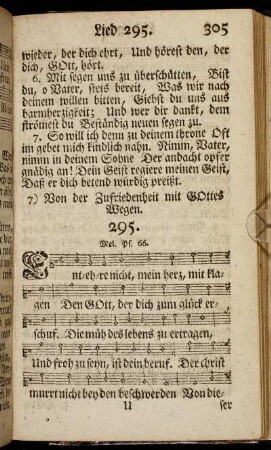 Lied 295. 305
wieder, der dich ehrt, Und hörest den, der
dich, GOtt, hört.
6. Mit segen uns zu überschütten, Bist
du, o Vater, stets bereit, Was wir nach
deinem willen bitten, Giebst du uns aus
barmherzigkeit; Und wer dir dankt, dem
strömest du Beständig neuen segen zu.
7. So will ich denn zu deinem throne Oft
im gebet mich kindlich nahn. Nimm, Vater,
nimm in deinem Sohne Der andacht opfer
gnädig an! Dein Geist regiere meinen Geist,
Daß er dich betend würdig preißt.
7) Von der Zufriedenheit mit GOttes
Wegen.
295.
Mel. Ps. 66.
Ent-eh-re nicht, mein herz, mit kla-
gen Den GOtt, der dich zum glück er-
schuf. Die müh des lebens zu ertragen,
Und froh zu seyn, ist dein beruf. Der christ
murrt nicht bey den beschwerden Von die-
U ser